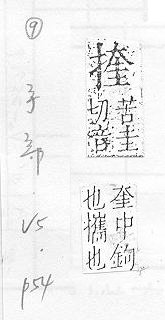 㨒
苦圭
切音
奎中鉤
也攜也
⑨ 子部·V5·p54